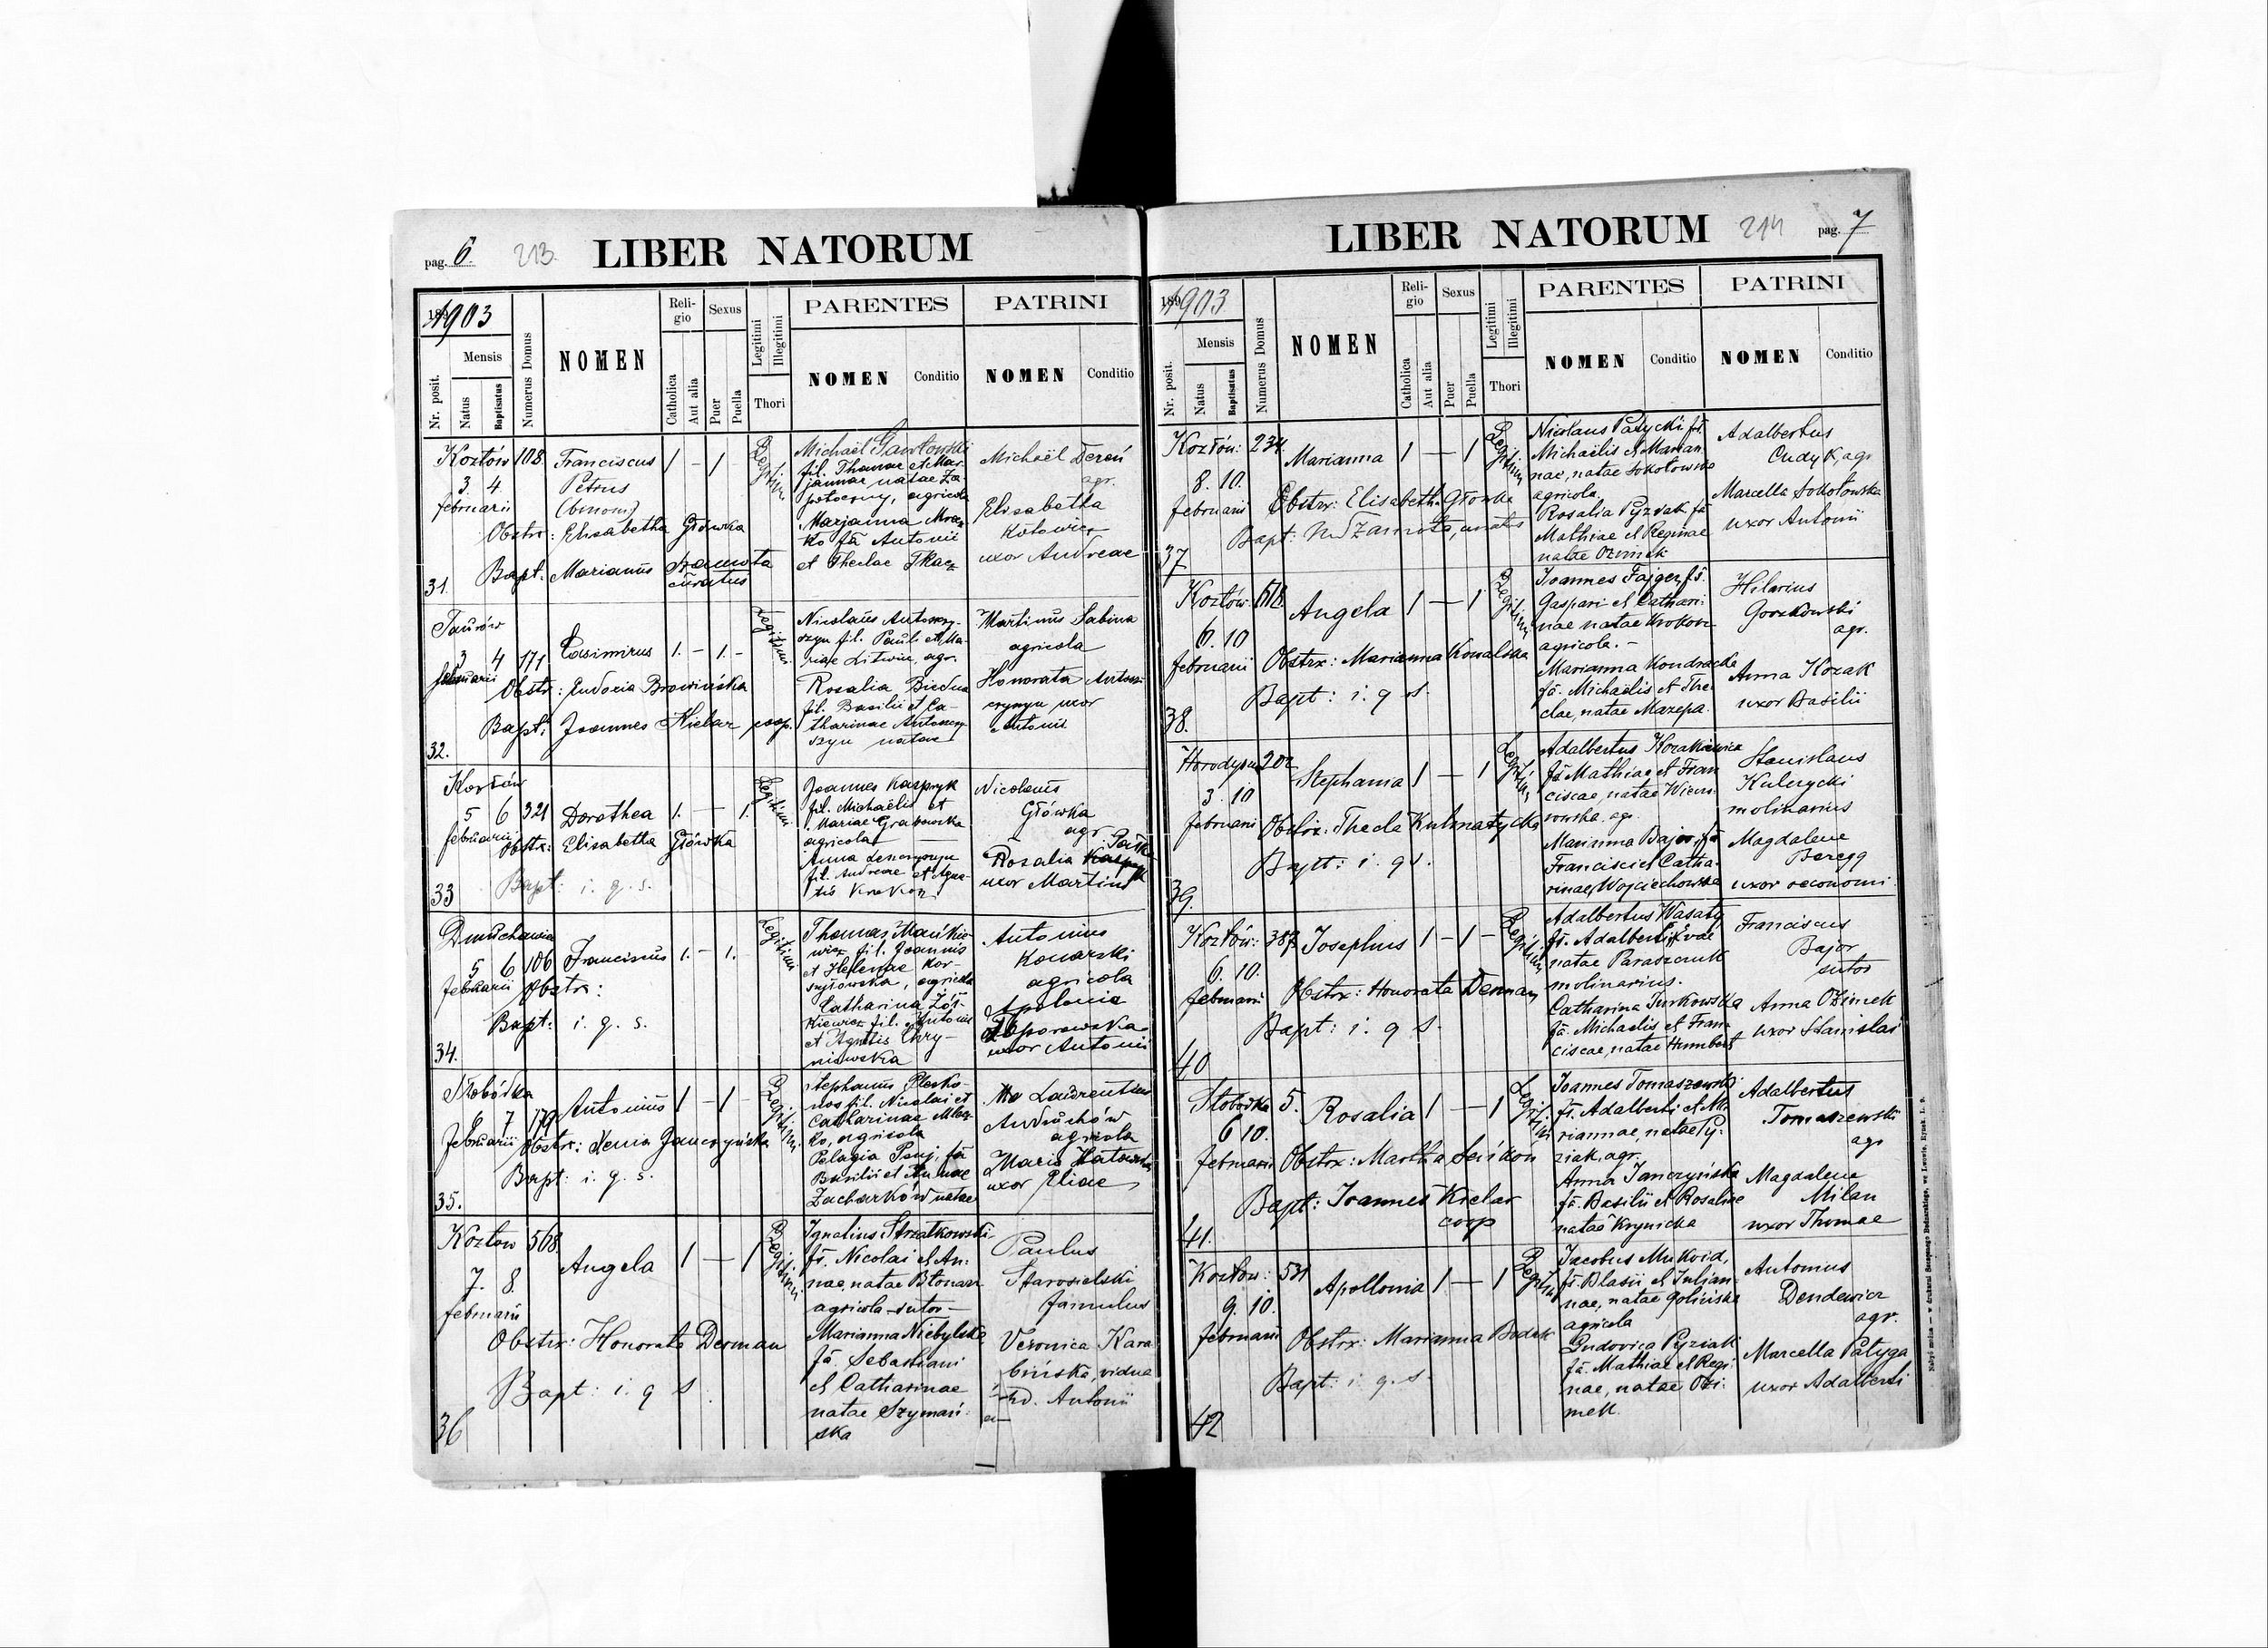 pag. 6. 213. LIBER NATORUM
1903
Mensis
Nr. posit.
Natus
Baptisatus
Numerus Domus
NOMEN
Reli-
gio
Catholica
Aut alia
Sexus
Puer
Puella
Legitimi
Illegitimi
Thori
PARENTES
NOMEN
Conditio
PATRINI
NOMEN
Conditio
Kozłów 108
3 4
februarii
31.
Franciscus
Petrus
(binom)
Obstr: Elisabetha Główka
Bapt: Marianus Szamota
curatus
1 - 1
Legitimi
Michaël Gawłowski
fil. Thomae et Mar-
jannae natae Za-
potoczny, agricola
Marjanna Mrocz
ko fa Antonii
et Theclae Tkacz
Michaël Dereń
agr.
Elisabetha
Kotowicz
uxor Andreae
Taurów
3 4 171
februarii
32.
Casimirus 1. - 1. -
Obstr: Eudoxia Browińska
Bapt: Joannes Kielar coop.
Legitimi
Nicolaus Antosz-
szyn fil. Pauli et Ma-
riae Litwin, agr.
Rosalia Biedna
fil. Basilii et Ca-
tharinae
natae
Martinus Sabina
agricola
Honorata
uxor
Antonii
Kozłów
5 6 321
februarii
33
Dorothea 1. — 1.
Obstr: Elisabetha Główka
Bapt: i. q. s.
Legitimi
Joannes Kaspryk
fil. Michaëlis et
Mariae Grabowska
agricola
Anna
fil. Andreae et Agne-
tis Krokosz
Nicolaus
Główka
agr.
Rosalia
uxor Martini
5 6 106
februarii
34.
Franciscus 1. - 1.
Obstr:
Bapt: i. q. s.
Legitimi
Thomas Mańkie-
wicz fil. Joannis
et Helenae Kor-
szyłowska, agricola
Catharina
kiewicz fil. Antonii
et Agnetis Chry-
niewska
Antonius
Konarski
agricola
Apolonia
uxor Antonii
Słobódka
6 7 179
februarii
35.
Antonius 1 - 1
Obstr: Xenia Janczyńska
Bapt: i. q. s.
Legitimi
Stephanus Plesko-
nos fil. Nicolai et
Catharinae
ko, agricola
Pelagia fa
Basilii et Annae
Zacharków natae
Laurentius
Andruchów
agricola
Maria
uxor Eliae
Kozłow 568
7. 8
februarii
36
Angela 1 — 1
Obstr: Honorata Derman
Bapt: i. q s
Legitimi
Ignatius Strzałkowski
fs. Nicolai et An-
nae, natae Błonarz
agricola-sutor-
Marianna Niebylska
fa. Sebastiani
et Catharinae
natae Szymań-
ska
Paulus
Starosielski
famulus
Veronica Kara
bińska, vidua
Antonii
LIBER NATORUM 214 pag. 7
1903
Mensis
Nr. posit.
Natus
Baptisatus
Numerus Domus
NOMEN
Reli-
gio
Catholica
Aut alia
Sexus
Puer
Puella
Legitimi
Illegitimi
Thori
PARENTES
NOMEN
Conditio
PATRINI
NOMEN
Conditio
Kozłów: 234.
8. 10.
februarii
37
Marianna 1 — 1
Obstrx: Elisabetha Głowka
Bapt: M Szamota,
Legitimi
Nicolaus Patycki fs.
Michaëlis et Marian
nae, natae Sokołowska
agricola.
Rosalia Pyziak fa
Mathiae et Reginae
natae Ozimek
Adalbertus
Cudyk, agr
Marcella Sokołowska
uxor Antonii
Kozłów 518
6. 10
februarii
38.
Angela 1 — 1
Obstrx: Marianna Kowalska
Bapt: i. q s.
Legitimi
Joannes Fajger, fs.
Gaspari et Cathari
nae natae Krokosz
agricola.-
Marianna Kondracka
fa. Michaëlis et The
clae, natae Mazepa
Hilarius
Gorzkowski
agr.
Anna Kozak
uxor Basilii
202
3. 10
februarii
39.
Stephania 1 — 1
Obstrx: Thecla Kulmatycka
Bapt: i. q s.
Legitimi
Adalbertus Kozakiewicz
fs Mathiae et Fran
ciscae, natae
agr.
Marianna Bajor, fa
Francisci et Catha-
rinae, Wojciechowska
Stanislaus
Kulczycki
molinarius
Magdalene
Beregg
uxor oeconomi
Kozłów: 387.
6. 10.
februarii
40
Josephus 1 - 1 -
Obstrx: Honorata Derman
Bapt: i. q s.
Legitimi
Adalbertus Wasaty
fs. Adalberti, Evae
natae Paraszczuk
molinarius.
Catharina Turkowska
fa. Michaelis et Fran
ciscae, natae Humbert
Franciscus
Bajor
sutor
Anna Ozimek
uxor Stanislai
Słobodka 5.
6 10.
februarii
41.
Rosalia 1 — 1
Obstrx: Martha Seńkow
Bapt: Joannes Kielar
coop
Legitimi
Joannes Tomaszewski
fs. Adalberti et Ma
riannae, natae Py-
ziak, agr.
Anna Janczyńska
fa. Basilii et Rosaliae
natae Krynicka
Adalbertus
Tomaszewski
agr
Magdalene
Milan
uxor Thomae
Kozłow: 531
9. 10.
februarii
42
Apollonia 1 — 1
Obstrx: Marianna Bodak
Bapt: i. q. s.
Legitimi
Jacobus Mukoid,
fs. Blasii et Julian-
nae, natae Golińska
agricola
Ludovica Pyziak
fa. Mathiae et Regi
nae, natae Ozi-
mek.
Antonius
Dendewicz
agr.
Marcella Patyga
uxor Adalberti